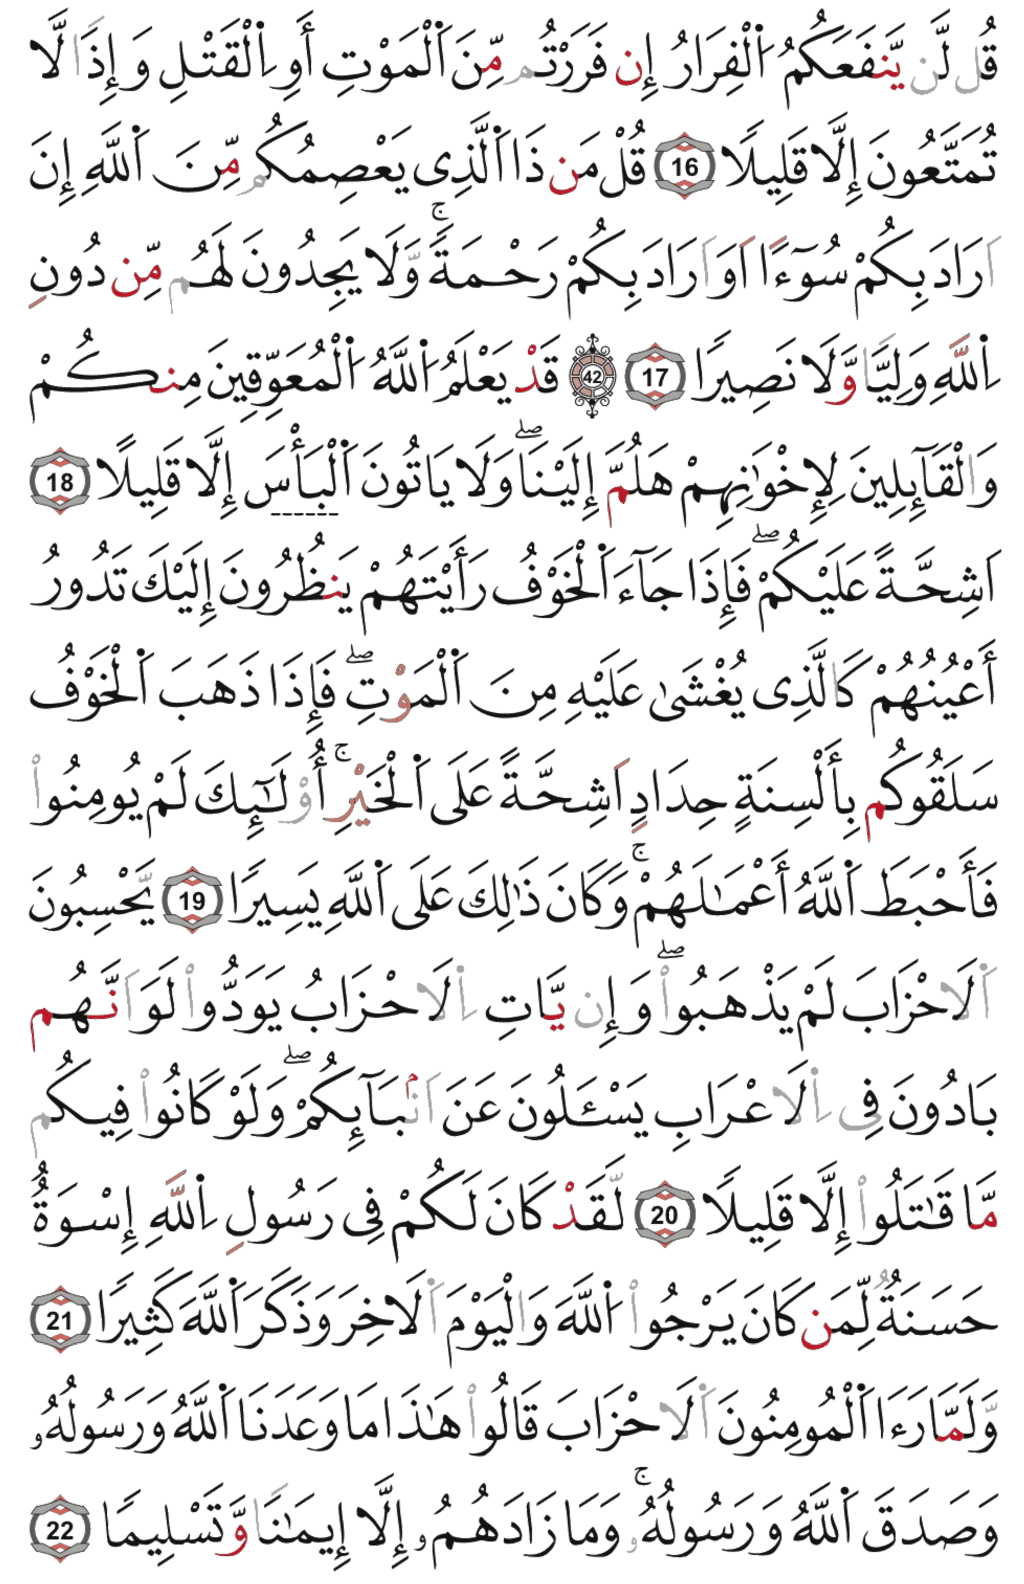 قُل لَّن يَّنفَعَكُمُ اُ۬لْفِرَارُ إِن فَرَرْتُم مِّنَ اَ۬لْمَوْتِ أَوِ اِ۬لْقَتْلِ وَإِذَا لَّا
تُمَتَّعُونَ إِلَّا قَلِيلًا 16 قُلْ مَن ذَا اَ۬لَّذِى يَعْصِمُكُم مِّنَ اَ۬للَّهِ إِنَ
اَرَادَ بِكُمْ سُوٓءًا اَوَ اَرَادَ بِكُمْ رَحْمَةًۚ وَّلَا يَجِدُونَ لَهُم مِّن دُونِ
اِ۬للَّهِ وَلِيًّا وَّلَا نَصِيرًا 17 42 قَدْ يَعْلَمُ اُ۬للَّهُ اُ۬لْمُعَوِّقِينَ مِنكُمْ
وَالْقَآئِلِينَ لِإِخْوَٰنِهِمْ هَلُمَّ إِلَيْنَاۖ وَلَا يَاتُونَ اَ۬لْبَأْسَ إِلَّا قَلِيلًا 18
اَشِحَّةً عَلَيْكُمْۖ فَإِذَا جَآءَ اَ۬لْخَوْفُ رَأَيْتَهُمْ يَنظُرُونَ إِلَيْكَ تَدُورُ
أَعْيُنُهُمْ كَالَّذِى يُغْشَىٰ عَلَيْهِ مِنَ اَ۬لْمَوْتِۖ فَإِذَا ذَهَبَ اَ۬لْخَوْفُ
سَلَقُوكُم بِأَلْسِنَةٍ حِدَادٍ اَشِحَّةً عَلَى اَ۬لْخَيْرِۚ أُوْلَٰٓئِكَ لَمْ يُومِنُواْ
فَأَحْبَطَ اَ۬للَّهُ أَعْمَٰلَهُمْۚ وَكَانَ ذَٰلِكَ عَلَى اَ۬للَّهِ يَسِيرًا 19 يَّحْسِبُونَ
اَ۬لَاحْزَابَ لَمْ يَذْهَبُواْۖ وَإِن يَّاتِ اِ۬لَاحْزَابُ يَوَدُّواْ لَوَ اَنَّهُم
بَادُونَ فِى اِ۬لَاعْرَابِ يَسْـَٔلُونَ عَنَ اَنۢبَآئِكُمْۖ وَلَوْ كَانُواْ فِيكُم
مَّا قَٰتَلُواْ إِلَّا قَلِيلًا 20 لَّقَدْ كَانَ لَكُمْ فِى رَسُولِ اِ۬للَّهِ إِسْوَةٌ
حَسَنَةٌ لِّمَن كَانَ يَرْجُواْ اُ۬للَّهَ وَالْيَوْمَ اَ۬لَاخِرَ وَذَكَرَ اَ۬للَّهَ كَثِيرًا 21
وَّلَمَّا رَءَا اَ۬لْمُومِنُونَ اَ۬لَاحْزَابَ قَالُواْ هَٰذَا مَا وَعَدَنَا اَ۬للَّهُ وَرَسُولُهُۥ
وَصَدَقَ اَ۬للَّهُ وَرَسُولُهُۥۚ وَمَا زَادَهُمُۥ إِلَّا إِيمَٰنًا وَّتَسْلِيمًا 22